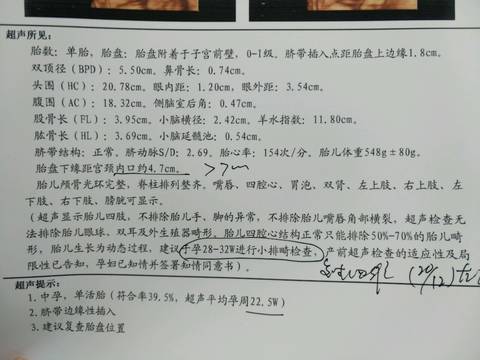 超声所见：
胎数：单胎，胎盘：胎盘附着于子宫前壁，0-I级。脐带插入点距胎盘上边缘1.8cm。
双顶径（BPD）：5.50cm。鼻骨长：0.74cm。
头围（HC）：20.78cm。眼内距：1.20cm，眼外距：3.54cm。
腹围（AC）：18.32cm。侧脑室后角：0.47cm。
股骨长（FL）：3.95cm。小脑横径：2.42cm。羊水指数：11.80cm。
肱骨长（HL）：3.69cm。小脑延髓池：0.54cm。
脐带结构：正常，脐动脉S/D：2.69。胎心率：154次/分。胎儿体重548g±80g。
胎盘下缘距宫颈内口约4.7cm。 >7cm
胎儿颅骨光环完整，脊柱排列整齐。嘴唇、四腔心、胃泡、双肾、左上肢、右上肢、左
下肢、右下肢、膀胱可显示。
（超声显示胎儿四肢，不排除胎儿手、脚的异常，不排除胎儿嘴唇角部横裂，超声检查无
法排除胎儿眼球，双耳及外生殖器畸形，胎儿四腔心结构正常只能排除50%-70%的胎儿畸
形，胎儿生长为动态过程，建议于孕28-32W进行小排畸检查，产前超声检查的适应性及局
限性已告知，孕妇已知情并签署知情同意书）。
超声提示：
1.中孕，单活胎（符合率39.5%，超声平均孕周22.5W）
2.脐带边缘性插入
3.建议复查胎盘位置